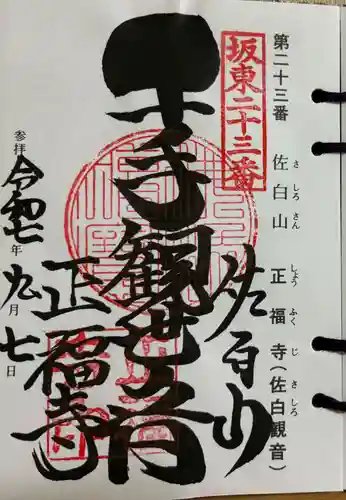 第二十三番 佐白山 正福寺(佐白観音)
さしろさん しょうふくじ さしろ
坂東二十三番
佐白山
千手観世音
正福寺
参拝 令和七年九月七日